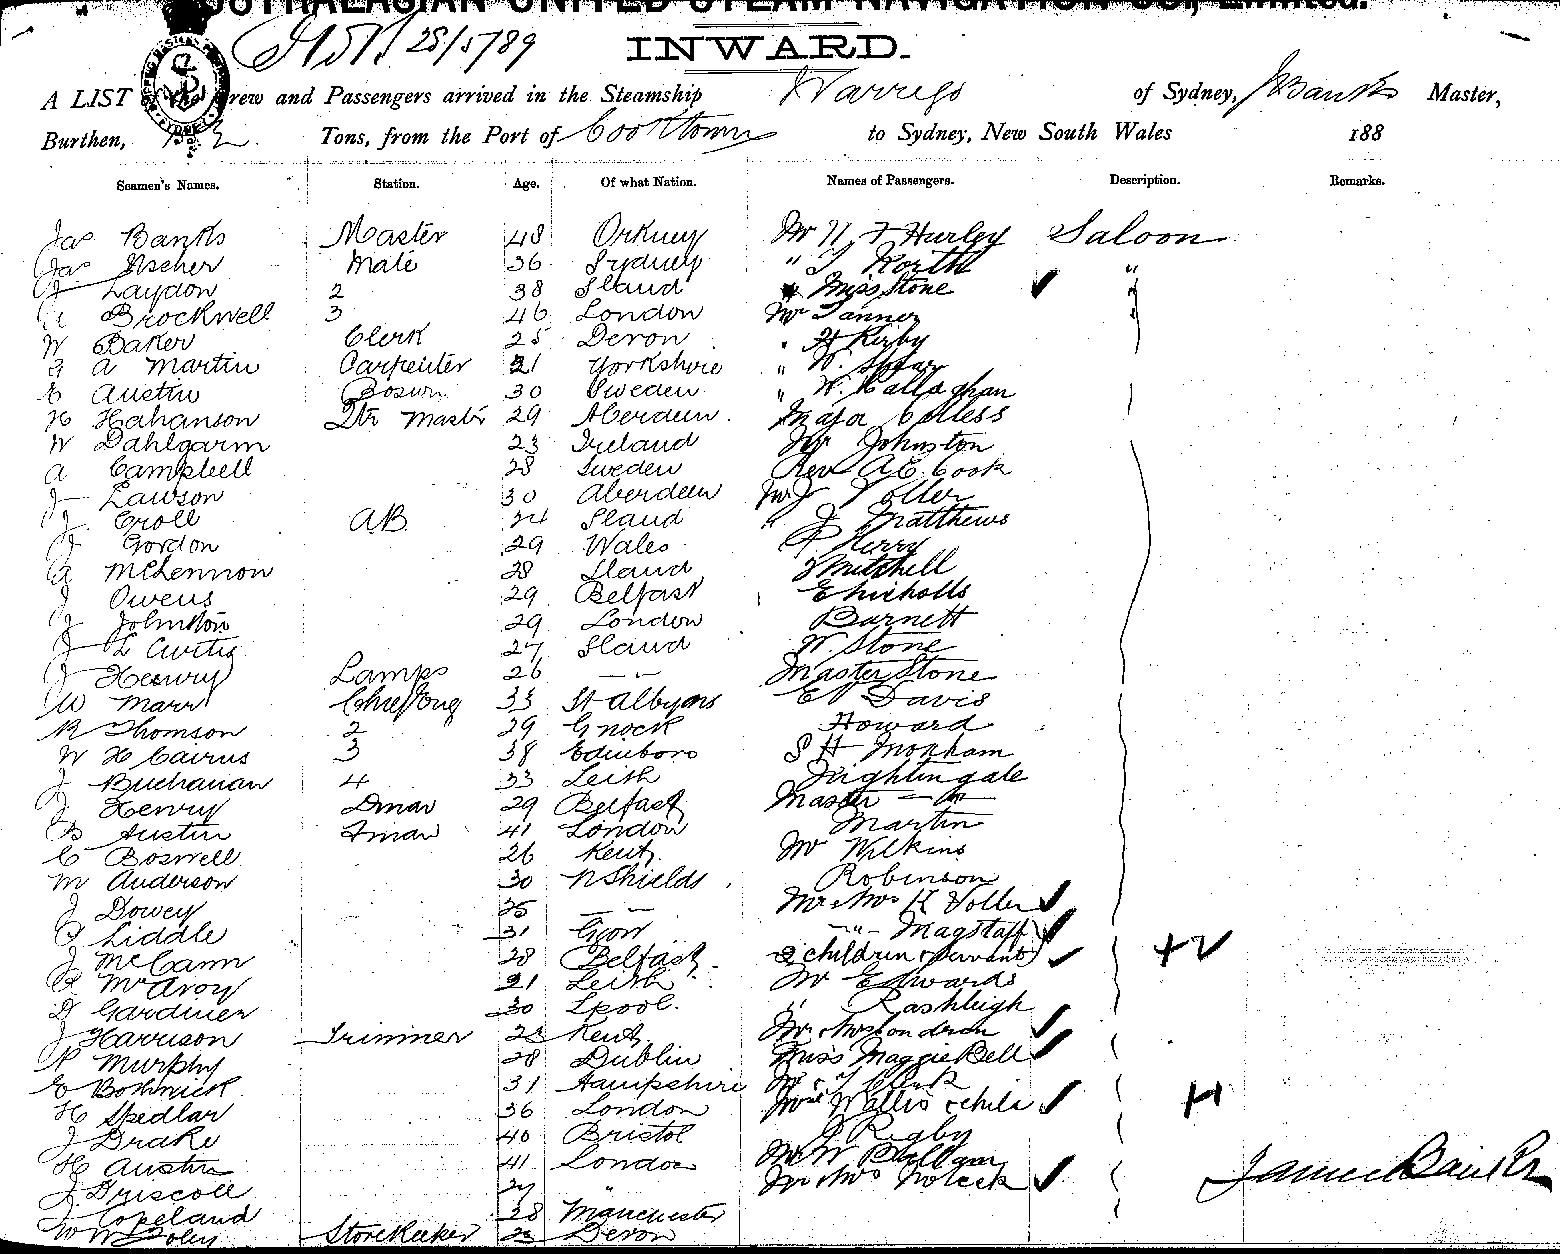 AUSTRALASIAN UNITED STEAM NAVIGATION CO., Limited.
28/5/89
INWARD.
A LIST of the Crew and Passengers arrived in the Steamship Warrego of Sydney, J Banks Master,
Burthen, Tons, from the Port of Cooktown to Sydney, New South Wales 188
Seamen's Names. Station. Age. Of what Nation. Names of Passengers. Description. Remarks.
Jas Banks Master 48 Orkney Mr Hurley Saloon
Jas Ascher Mate 36 Sydney " T North "
J Laydon 2 38 Sland Miss Stone "
Brockwell 3 46 London Mr Tanner
W Baker Clerk 25 Devon H Kirby
G A Martin Carpenter 21 Yorkshire " W. Spear
C Austin Bosun 30 Sweden " W. Callaghan
H Hahanson Qtr Mastr 29 Aberdeen Major Colless
W Dahlgarm 23 Ireland Mr Johnston
A Campbell 28 Sweden Rev A.C. Cook
J Lawson 30 Aberdeen Mr J Voller
J. Croll AB 24 Sland " J Matthews
J Gordon 29 Wales P Kerry
McLennon 28 Sland Mitchell
J Owens 29 Belfast E Nicholls
J Johnston 29 London Barnett
J L Curtis 27 Sland W. Stone
J Henry Lamps 26 — — Master Stone
W Marr Chief Eng 33 St Albyans E Davis
R Thomson 2 29 Gnock Howard
W H Cairns 3 38 Edinboro S H Monham
J Buchanan 4 33 Leith Nightingale
J Henry Dman 29 Belfast Master — " —
B Austin Fman 41 London Martin
C Boswell 26 Kent Mr Wilkins
M Anderson 30 N Shields Robinson
J Dowey 25 — — Mr & Mrs H Voller
Liddle 31 Magstaff
J McCann 28 Belfast 2 children & servant
R McAroy 21 Leith Mr Edwards
D Gardiner 30 Lpool. " Rashleigh
J Harrison Trimmer Kent Mr & Mrs
P Murphy 28 Dublin Miss Maggie Bell
E Bothwick 31 Hampshire Mr
H Spedlar 36 London Mrs Wallis & child
J Drake 40 Bristol J Rigby
H Austin 41 London Mr W
J Driscoll 27 " Mr & Mrs
J Copeland 38 Manchester
Wm Foley Storekeeper 23 Devon
James Banks